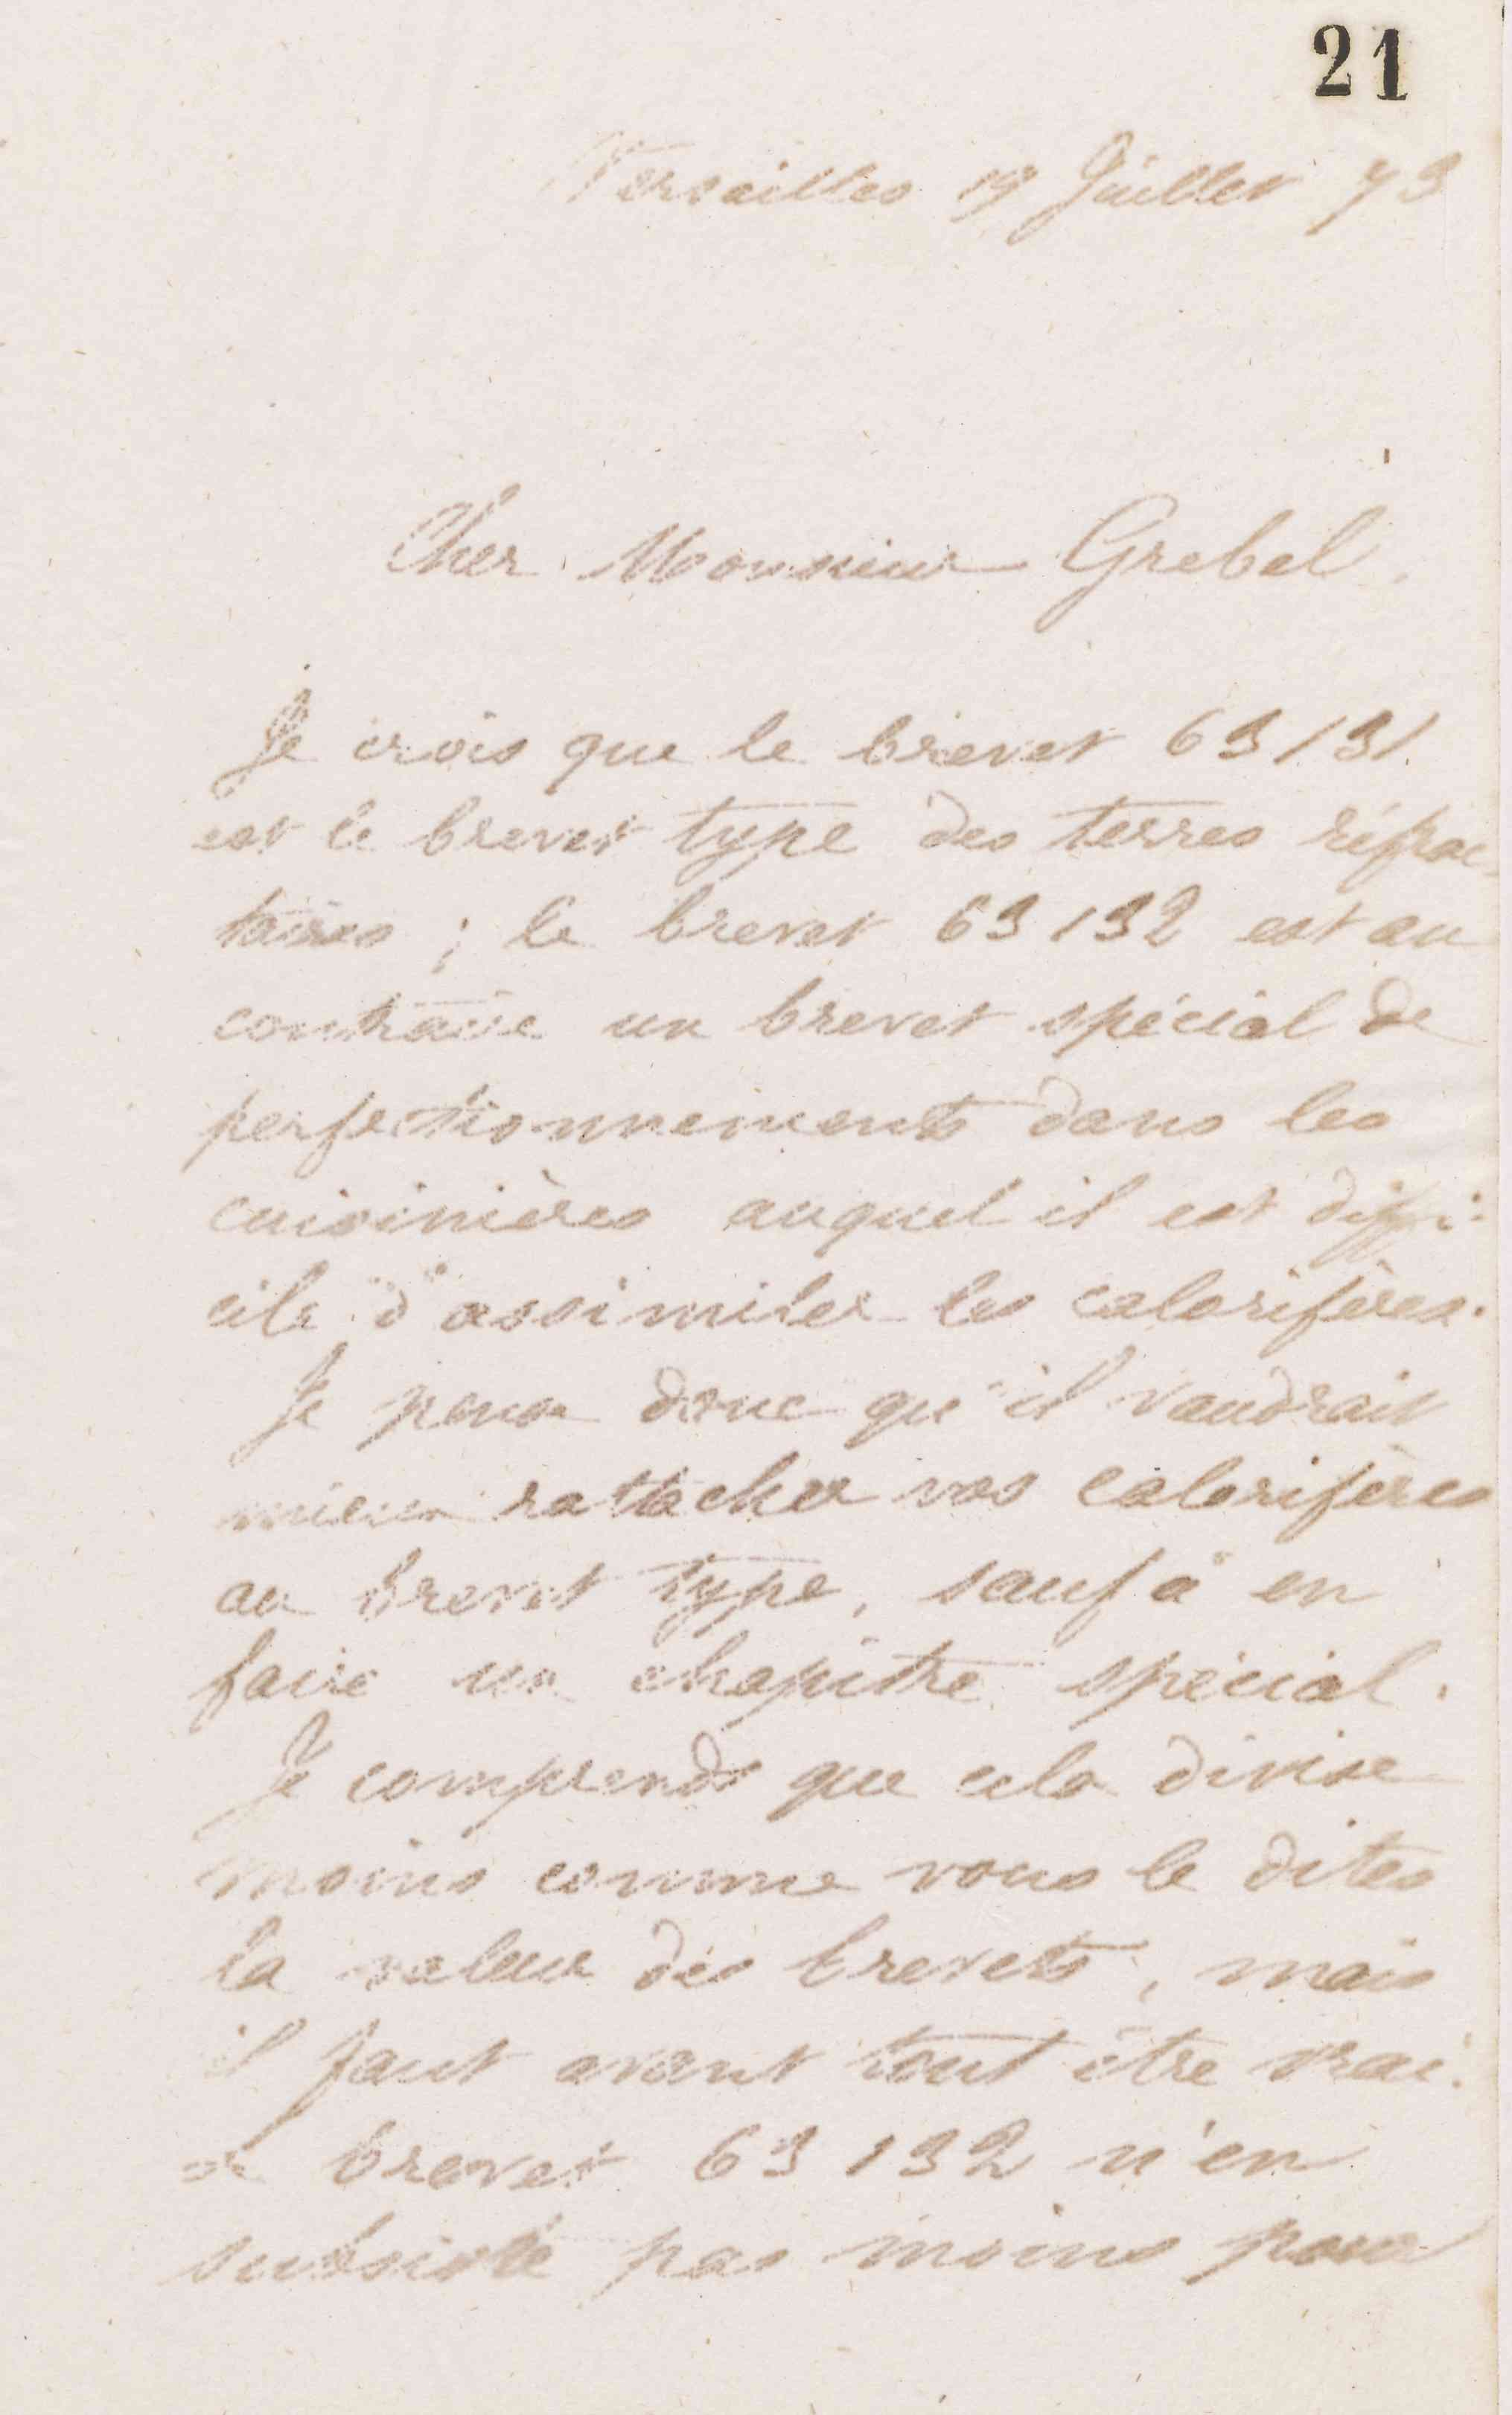 21
Versailles 19 Juillet 73
Cher Monsieur Grebel.
Je crois que le brevet 63131.
est le brevet type des terres réfrac-
taires ; le brevet 63132 est au
contraire un brevet spécial de
perfectionnements dans les
cuisinières auquel il est diffi-
cile d'assimiler les calorifères.
Je pense donc qu'il vaudrait
mieux rattacher vos calorifères
au brevet type, sauf à en
faire un chapitre spécial.
Je comprends que cela divise
moins comme vous le dites
la valeur des brevets, mais
il faut avant tout être vrai.
brevet 63132 n'en
subsiste pas moins pour